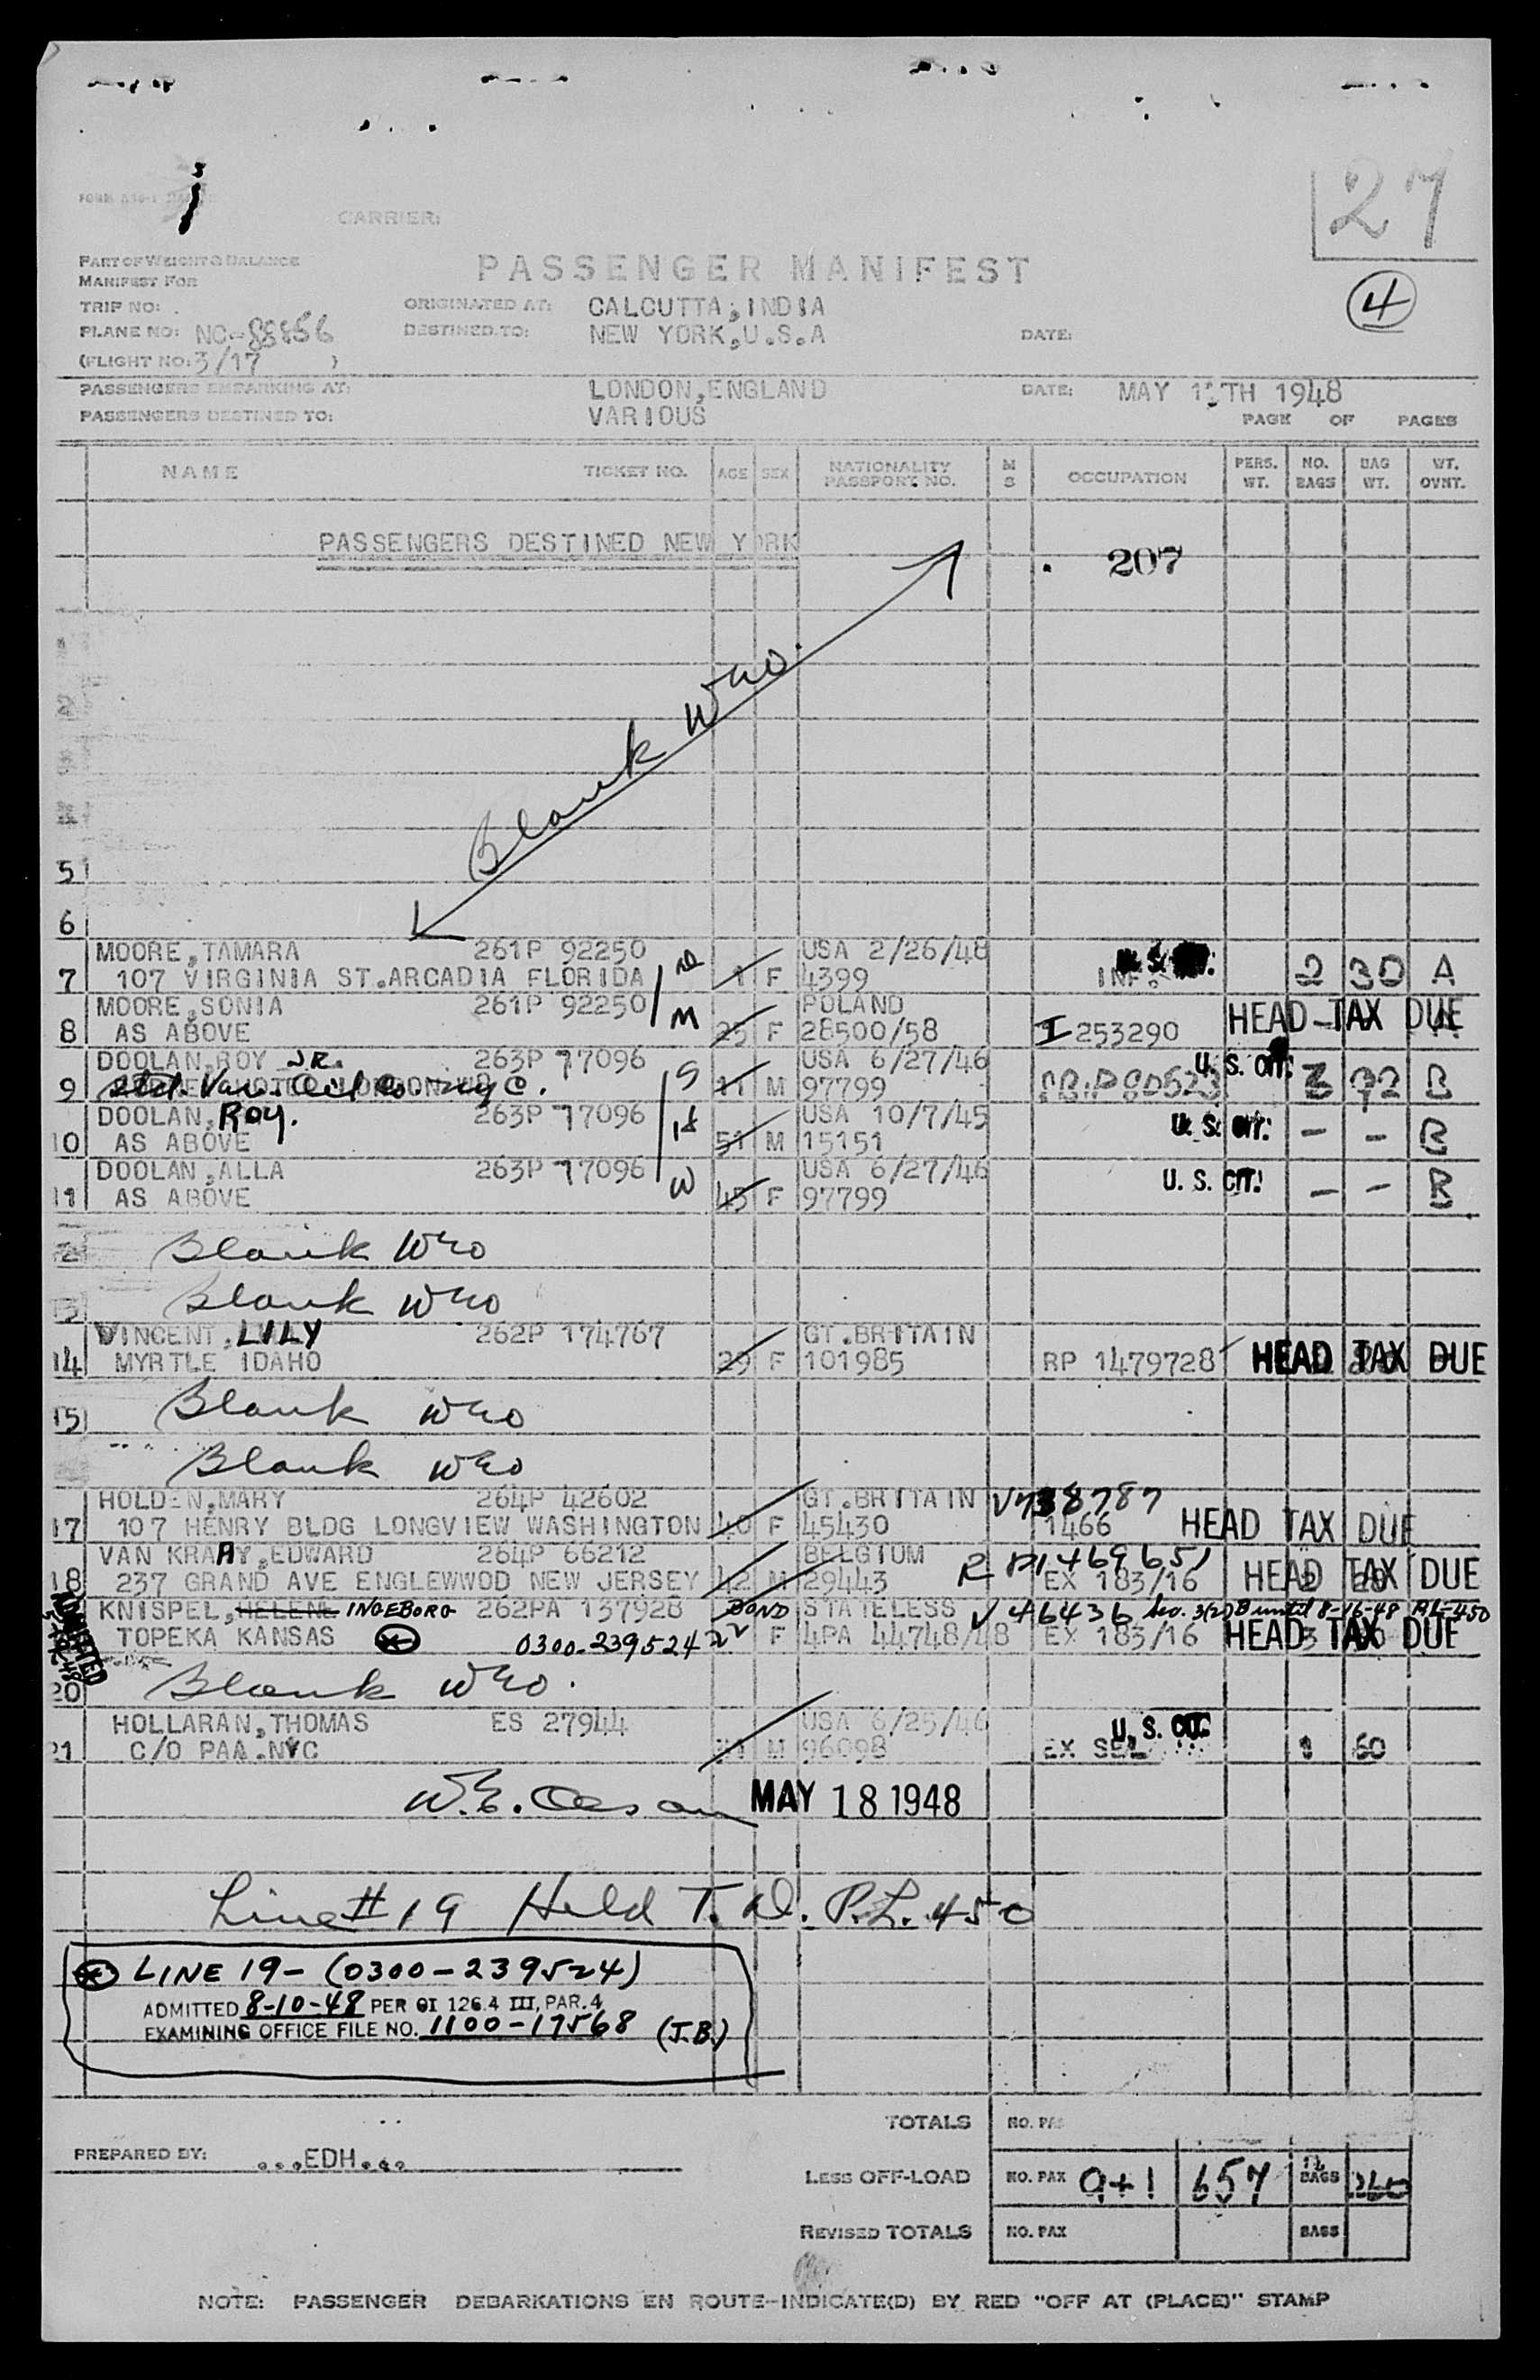 27
CARRIER:
PART OF WEIGHT & BALANCE
MANIFEST FOR
PASSENGER MANIFEST
4
TRIP NO:
ORIGINATED AT: CALCUTTA, INDIA
PLANE NO: NC-88856
DESTINED TO: NEW YORK, U.S.A
DATE:
(FLIGHT NO: 3/17 )
PASSENGERS EMBARKING AT: LONDON, ENGLAND DATE: MAY TH 1948
PASSENGERS DESTINED TO: VARIOUS
PAGE OF PAGES
NAME TICKET NO. AGE SEX NATIONALITY PASSPORT NO. M S OCCUPATION PERS. WT. NO. BAGS BAG WT. WT. OVNT.
PASSENGERS DESTINED NEW YORK
207
Blank WEO
5
6
MOORE, TAMARA 261P 92250 USA 2/26/48
7 107 VIRGINIA ST. ARCADIA FLORIDA 1 F 4399 INF. 2 30 A
MOORE, SONIA 261P 92250 M POLAND HEAD TAX DUE
8 AS ABOVE 25 F 28500/58 I 253290
DOOLAN, ROY JR. 263P 77096 S USA 6/27/46 U. S. CIT.
9 11 M 97799 3 72 B
DOOLAN, ROY. 263P 77096 USA 10/7/45 U. S. CIT.
10 AS ABOVE 51 M 15151 - - B
DOOLAN, ALLA 263P 77096 W USA 6/27/46 U. S. CIT.
11 AS ABOVE 45 F 97799 - - B
Blank WEO
Blank WEO
VINCENT, LILY 262P 174767 GT. BRITAIN
14 MYRTLE IDAHO 29 F 101985 RP 1479728 HEAD TAX DUE
15 Blank WEO
Blank WEO
HOLDEN, MARY 264P 42602 GT. BRITAIN V738787
17 107 HENRY BLDG LONGVIEW WASHINGTON 40 F 45430 1466 HEAD TAX DUE
VAN KRAAY, EDWARD 264P 66212 BELGIUM R P1469651
18 237 GRAND AVE ENGLEWWOD NEW JERSEY 42 M 29443 EX 183/16 HEAD TAX DUE
ADMITTED
KNISPEL, HELENE INGEBORG 262PA 137928 BOND STATELESS V 46436 Sec. 3(2) B until 8-16-48 PL-450
TOPEKA KANSAS 0300-239524 22 F 4PA 44748/48 EX 183/16 HEAD TAX DUE
20 Blank WEO.
HOLLARAN, THOMAS ES 27944 USA 6/25/46 U. S. CIT.
21 C/O PAA. NYC M 96098 1 60
MAY 18 1948
Line # 19 Held T. D. P.L. 450
LINE 19- (0300-239524)
ADMITTED 8-10-48 PER OI 126.4 III, PAR. 4
EXAMINING OFFICE FILE NO. 1100-17568 (J.B.)
TOTALS
PREPARED BY: ...EDH...
LESS OFF-LOAD NO. PAX 9+1 657 BAGS 260
REVISED TOTALS NO. PAX BAGS
NOTE: PASSENGER DEBARKATIONS EN ROUTE-INDICATE(D) BY RED "OFF AT (PLACE)" STAMP